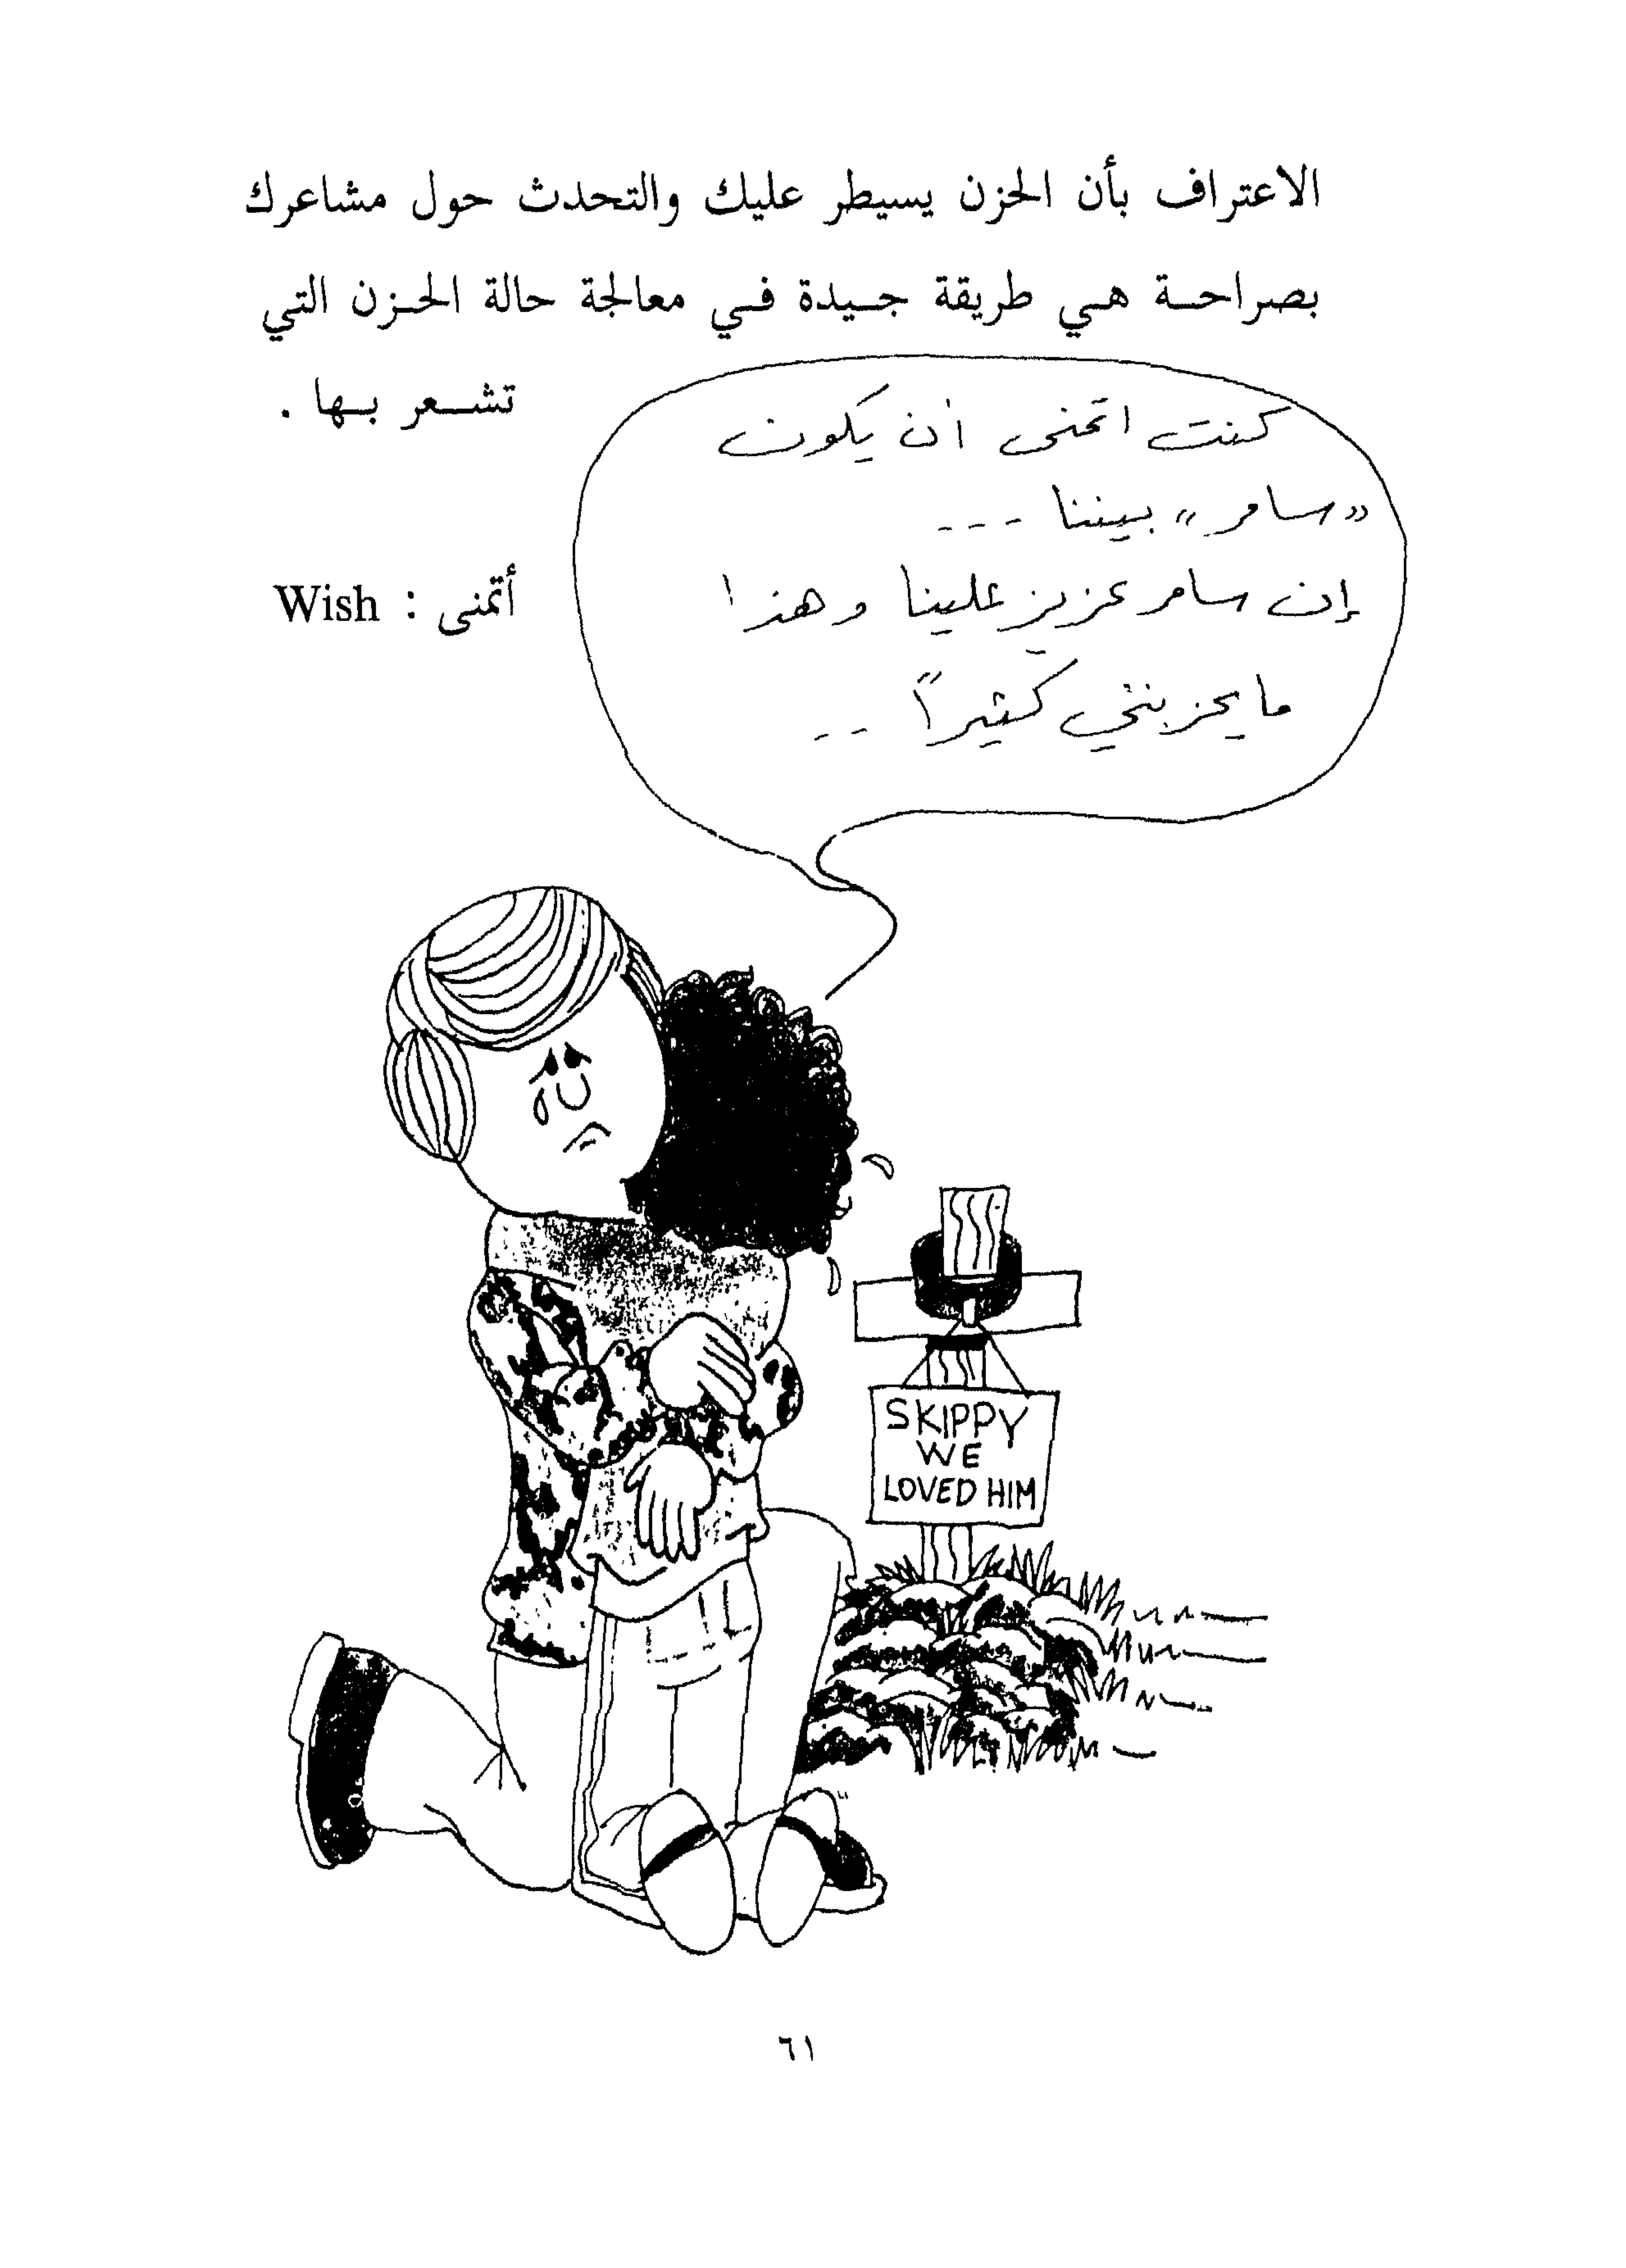 الاعتراف بأن الحزن يسيطر عليك والتحدث حول مشاعرك
بصراحة هي طريقة جيدة في معالجة حالة الحزن التي
تشعر بها .
كنت اتمنى ان يكون
«سامر» بيننا ---
إن سامر عزيز علينا وهذا
ما يحزنني كثيراً --
أتمنى : Wish
SKIPPY
WE
LOVED HIM
٦١